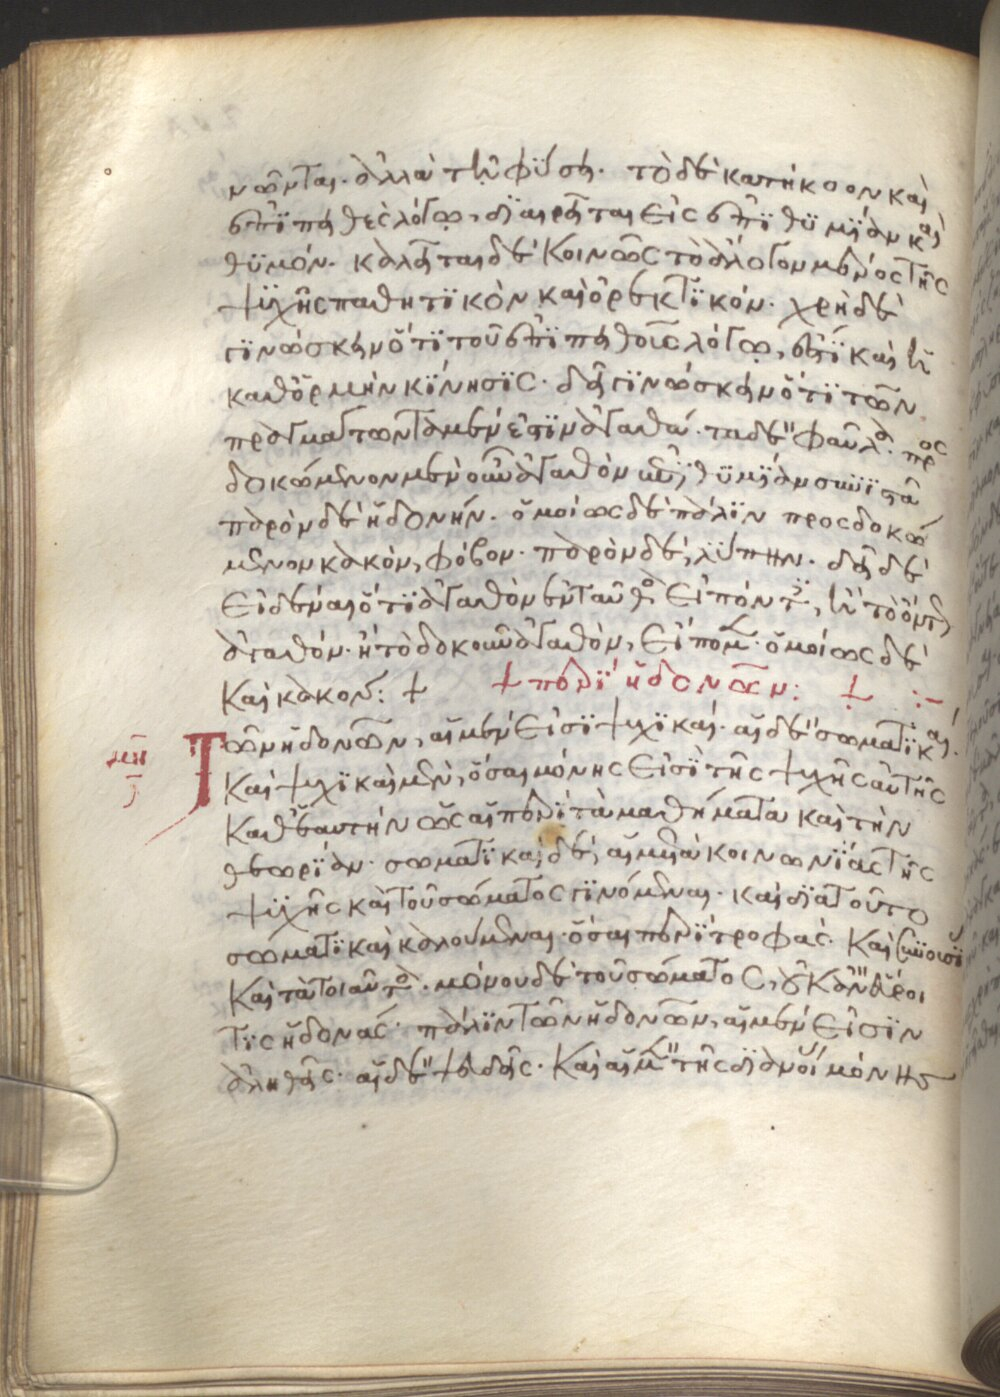 νοῦνται· ἀλλὰ τῇ φύσει. τὸ δὲ κατήκοον καὶ
ἐπιπειθὲς λόγῳ, διαιρεῖται εἰς ἐπιθυμίαν καὶ
θυμόν. καλεῖται δὲ κοινῶς τὸ ἄλογον μέρος τῆς
ψυχῆς παθητικὸν καὶ ὀρεκτικόν. χρὴ δὲ
γινώσκειν ὅτι τοῦ ἐπιπειθοῦς λόγῳ, ἐστὶ καὶ ἡ
καθ' ὁρμὴν κίνησις. δεῖ γινώσκειν ὅτι τῶν
πραγμάτων τὰ μέν εἰσιν ἀγαθά· τὰ δὲ φαῦλα. προς
δοκώμενον μὲν οὖν ἀγαθὸν ἐπιθυμίαν συνιστᾶ
παρὸν δὲ ἡδονήν. ὁμοίως δὲ πάλιν προσδοκώ
μενον κακὸν, φόβον· παρὸν δὲ, λύπην. δεῖ δὲ
εἰδέναι ὅτι ἀγαθὸν ἐνταῦθα εἰπόντες, ἢ τὸ ὄντως
ἀγαθόν· ἢ τὸ δοκοῦν ἀγαθὸν, εἴπομεν. ὁμοίως δὲ
καὶ κακόν: + + περὶ ἡδονῶν: + :-
μη Τῶν ἡδονῶν, αἱ μέν εἰσι ψυχικαί· αἱ δὲ σωματικαί.
καὶ ψυχικαὶ μὲν, ὅσαι μόνης εἰσὶ τῆς ψυχῆς αὐτῆς
καθ' ἑαυτὴν ὡς αἱ περὶ τὰ μαθήματα καὶ τὴν
θεωρίαν. σωματικαὶ δὲ, αἱ μετὰ κοινωνίας τῆς
ψυχῆς καὶ τοῦ σώματος γινόμεναι· καὶ διὰ τοῦτο
σωματικαὶ καλούμεναι· ὅσαι περὶ τροφὰς καὶ συνουσί
καὶ τὰ τοιαῦτα. μόνου δὲ τοῦ σώματος, οὐκ ἂν εὕροι
τις ἡδονάς. πάλιν τῶν ἡδονῶν, αἱ μέν εἰσιν
ἀληθεῖς· αἱ δὲ ψευδεῖς. καὶ αἱ μὲν τῆς διανοί μόνης